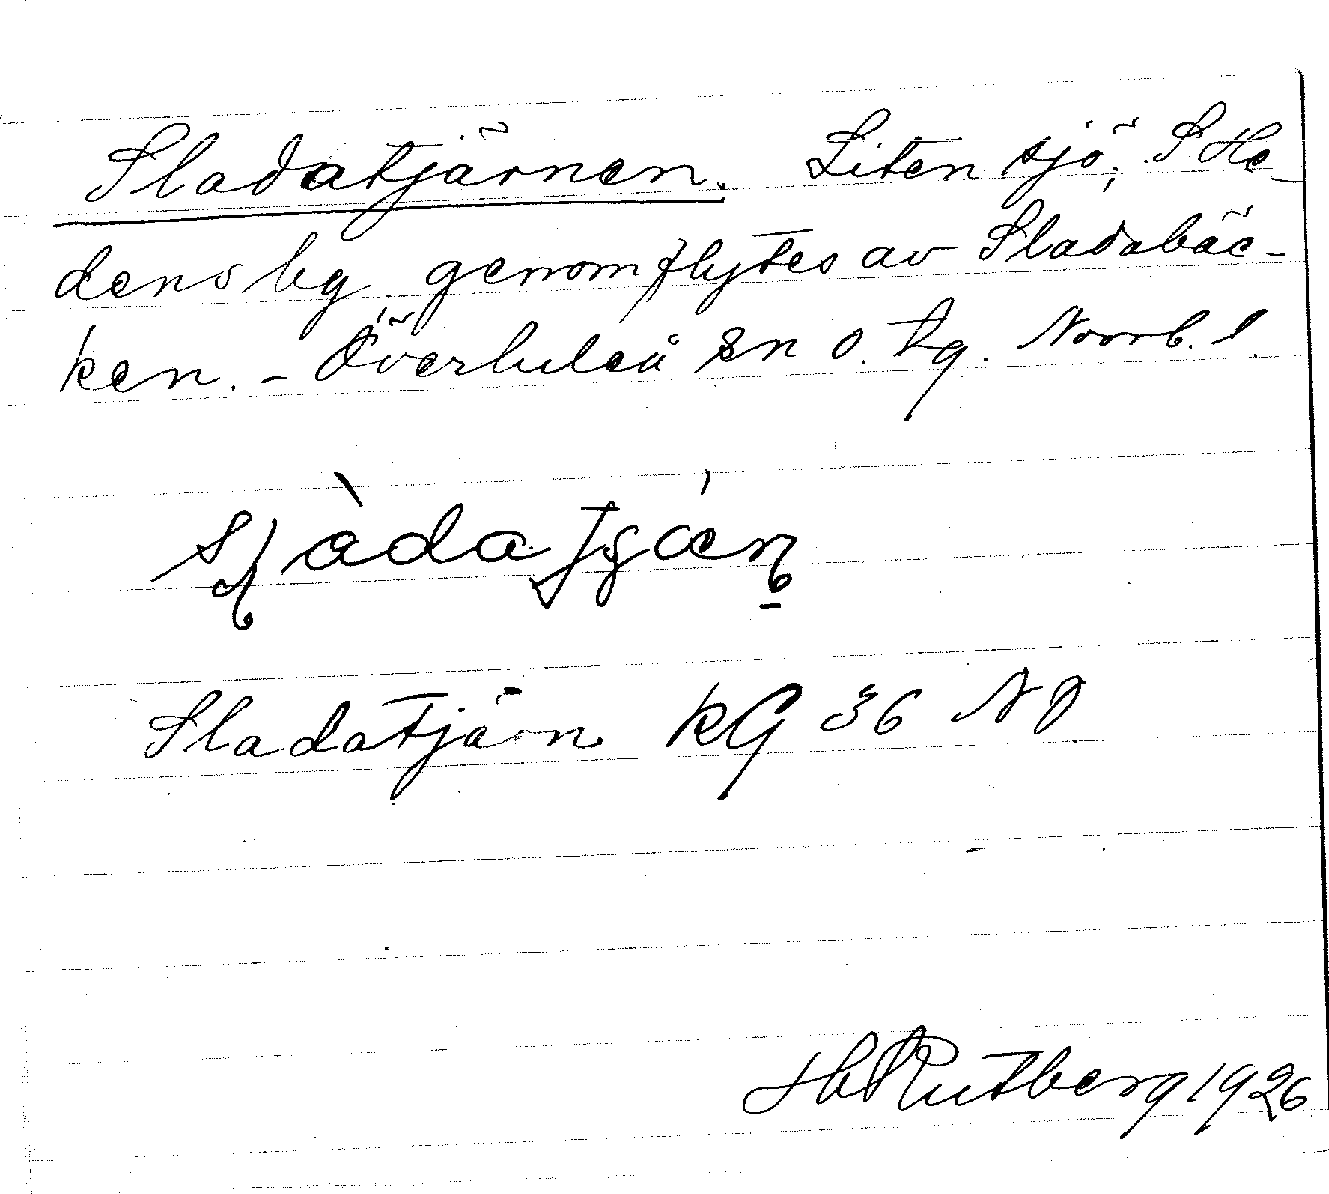 Sladatjärnen. Liten sjö; S He-
dens by genomflytes av Sladabäc-
ken. - Överluleå sn o. tg. Norrb. l.
Sladatjärn KG 36 NO
H Rutberg 1926